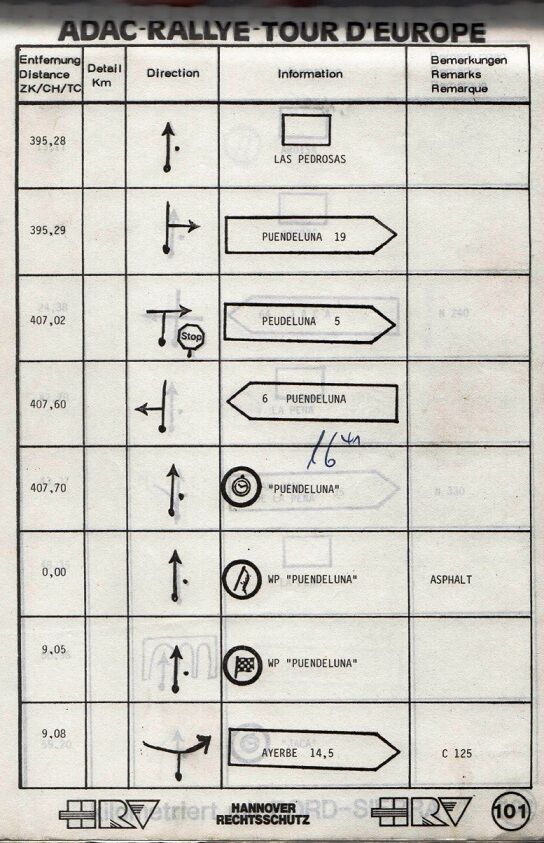 ADAC-RALLYE-TOUR D'EUROPE
Entfernung Distance ZK/CH/TC
Detail Km
Direction
Information
Bemerkungen Remarks Remarque
395,28
LAS PEDROSAS
395,29
PUENDELUNA 19
407,02
Stop
PEUDELUNA 5
N 240
407,60
6 PUENDELUNA
LA PEÑA
16
407,70
"PUENDELUNA"
N 330
0,00
WP "PUENDELUNA"
ASPHALT
9,05
WP "PUENDELUNA"
9,08
AYERBE 14,5
C 125
"JACA"
HRV
HANNOVER
RECHTSSCHUTZ
HRV
101